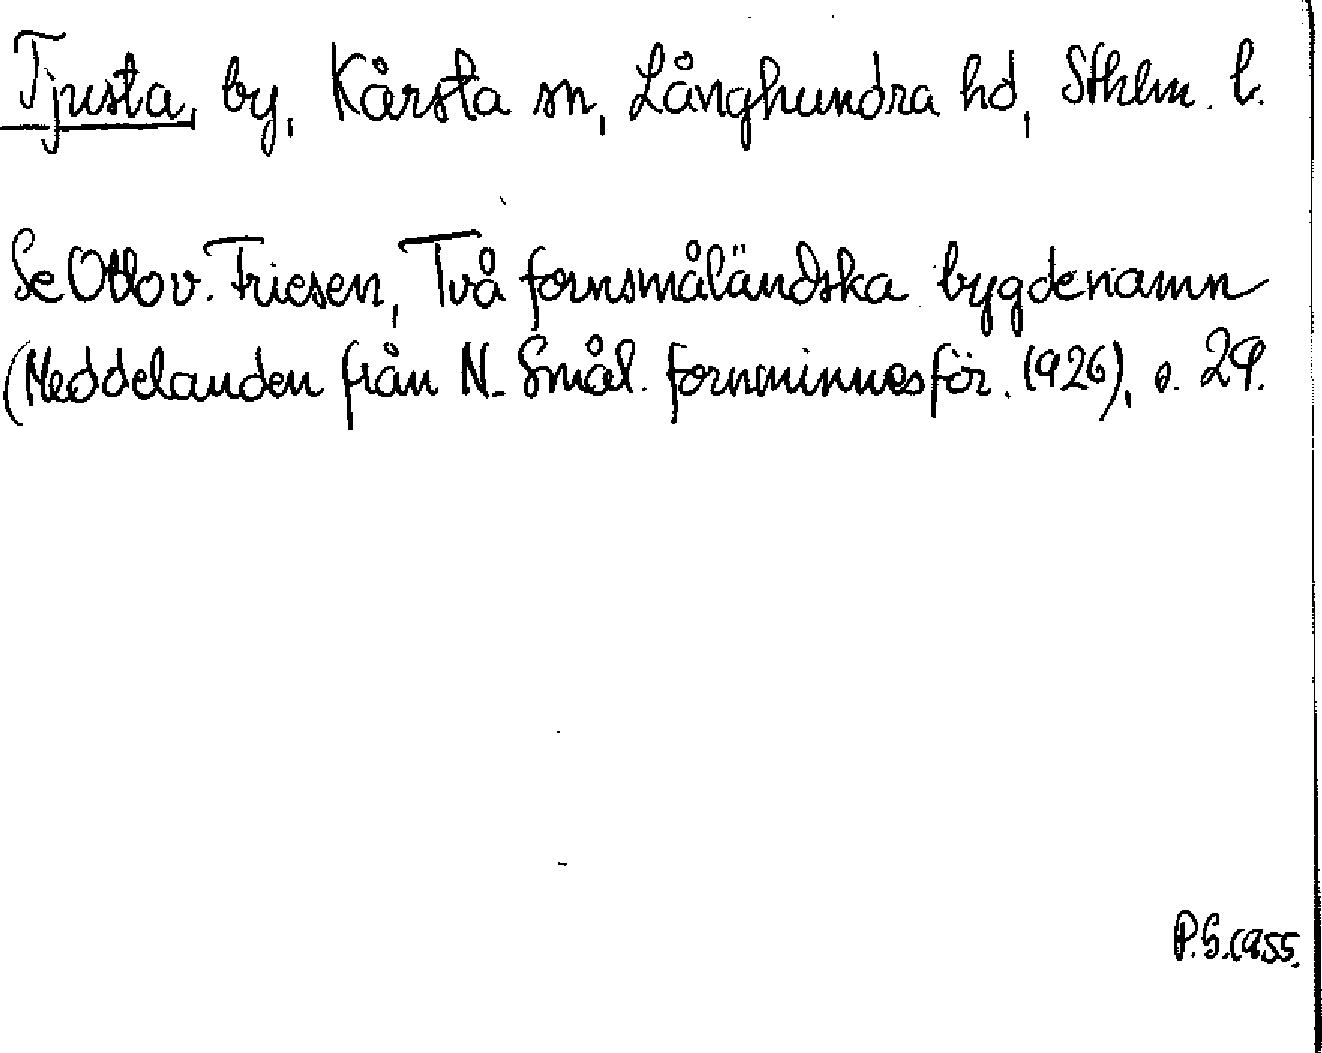 Tjusta, by, Kårsta sn, Långhundra hd, Sthlm. l.
Se Otto v. Friesen, Två fornsmåländska bygdenamn
(Meddelanden från N. Smål. fornminnesför. 1926), s. 29.
P.S. 1955.